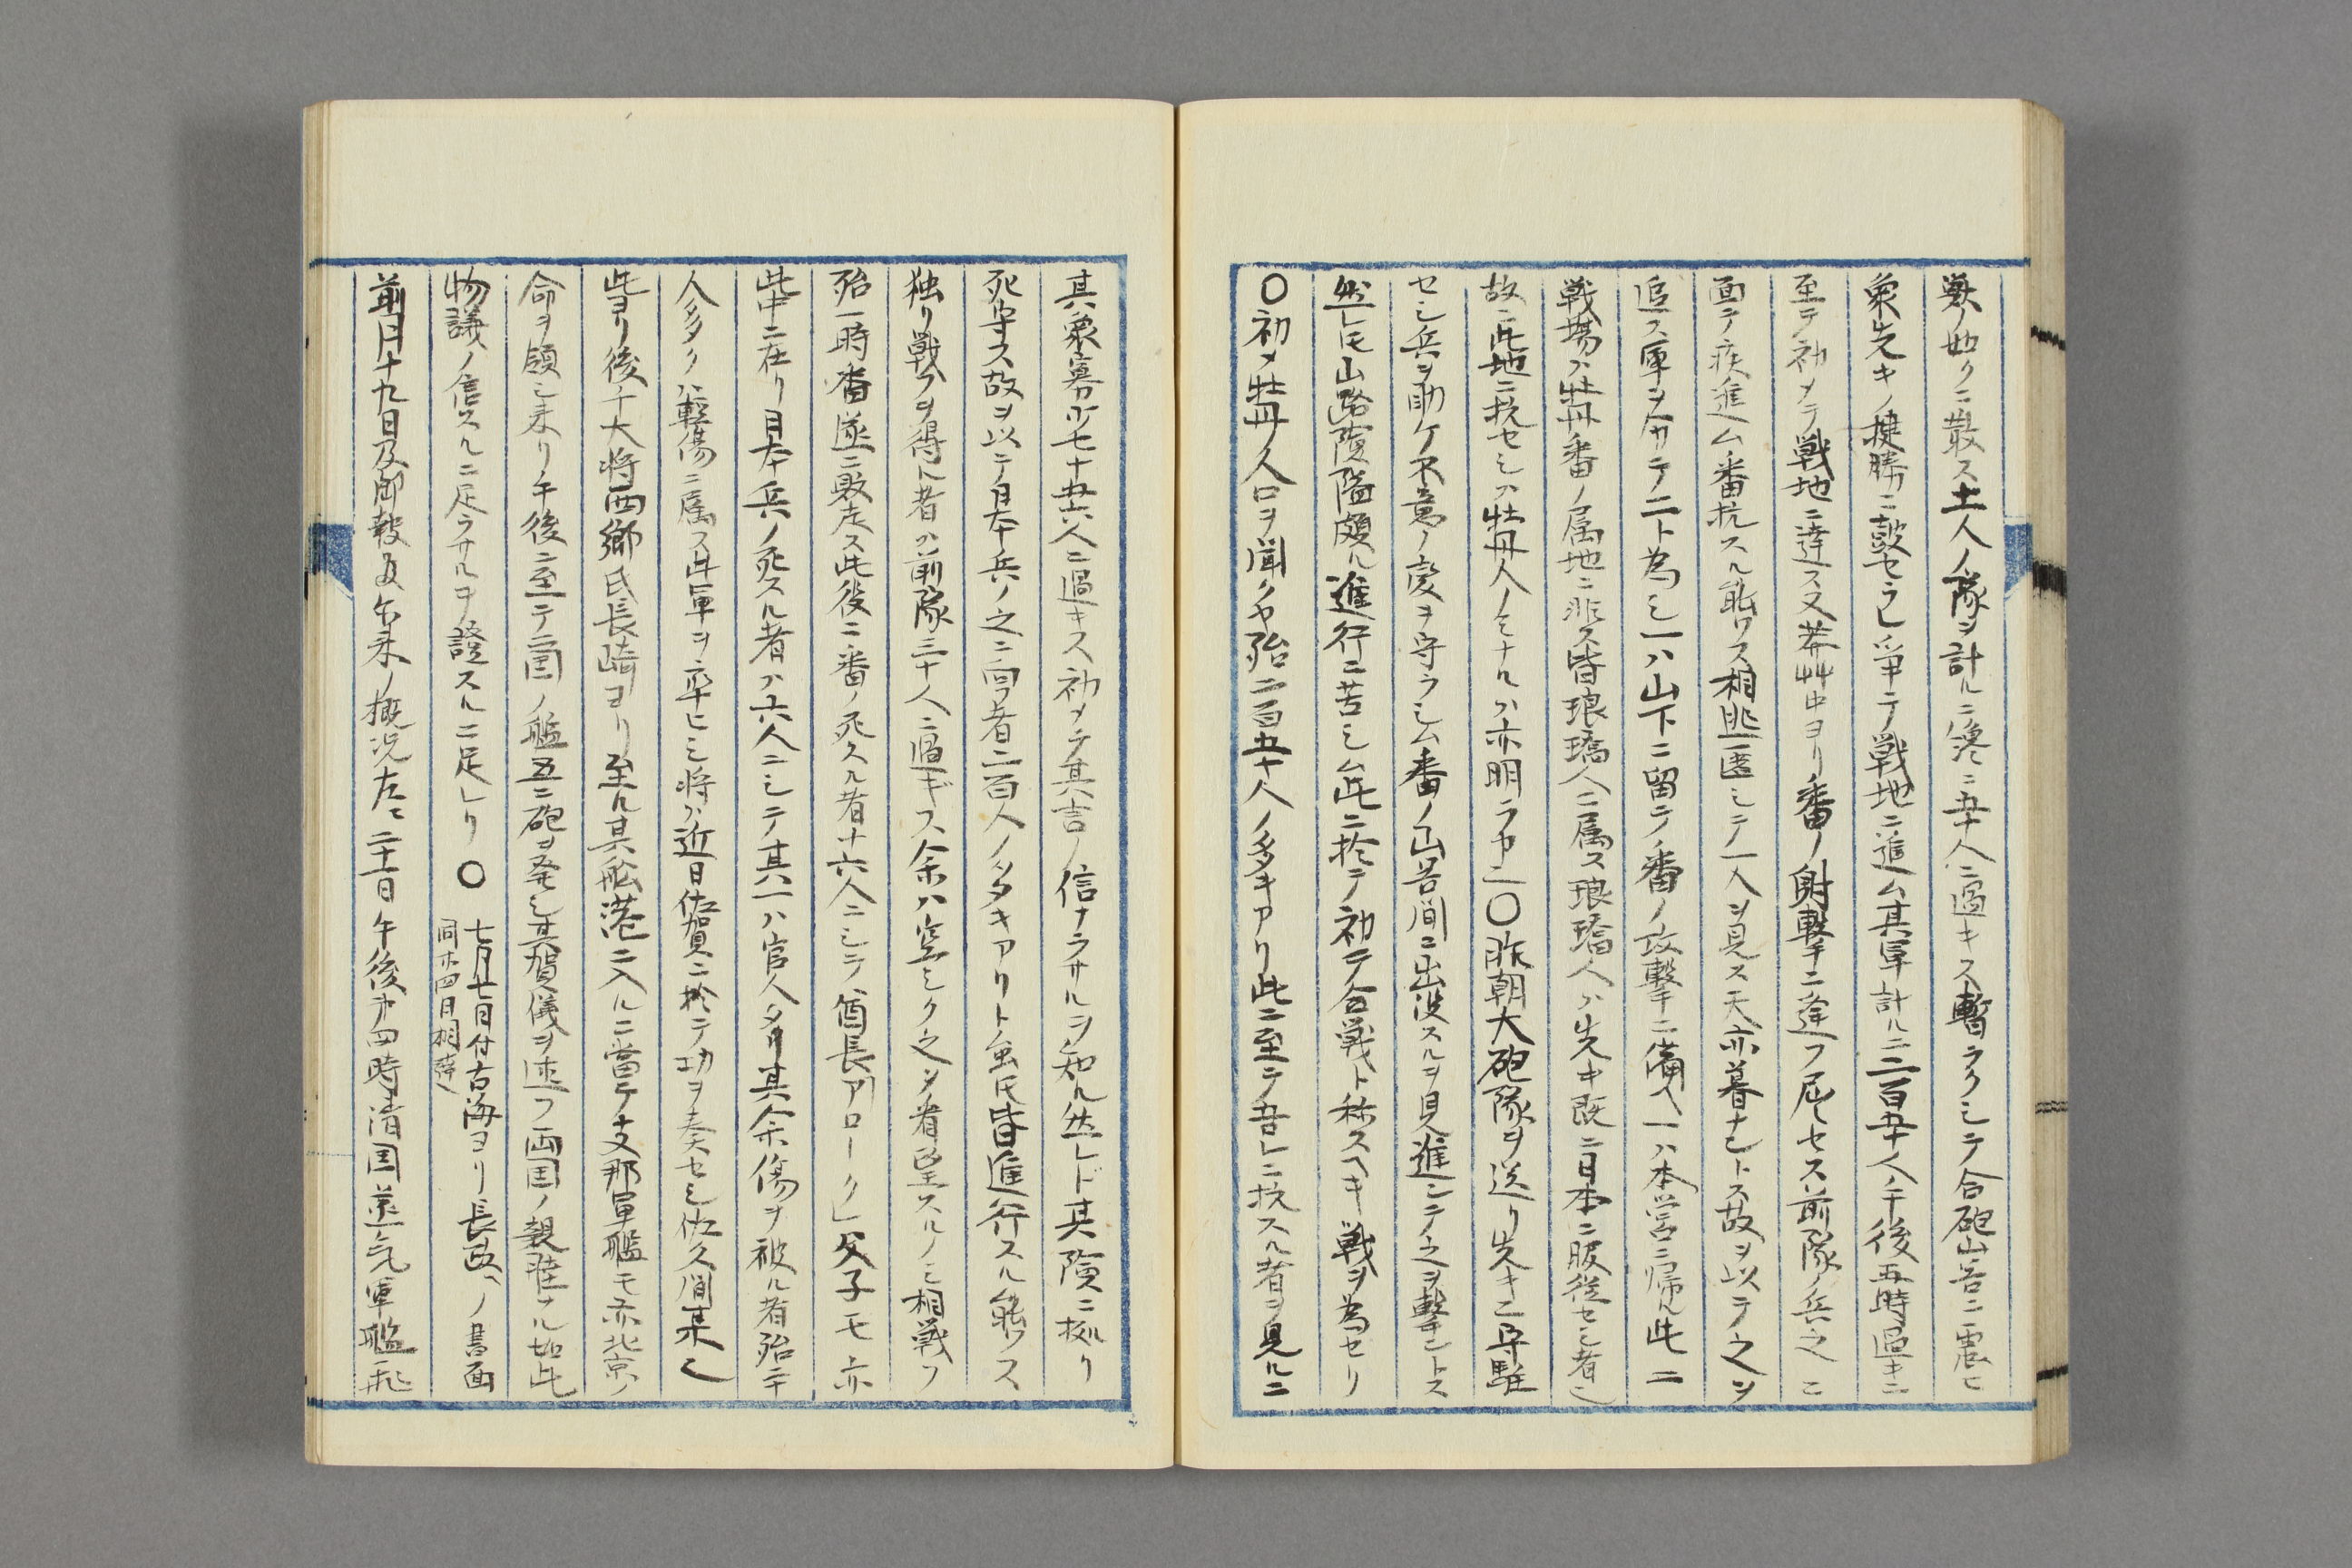 獣ノ如クニ散ス土人ノ隊ヲ計ルニ纔ニ五十人ニ過キス暫ラクシテ合砲山谷ニ震ヒ
衆先キノ捷勝ニ鼓セラレ爭テ戦地ニ進ム其軍計ルニ二百五十人午後五時過キニ
至テ初メテ戦地ニ達ス又莽艸中ヨリ番ノ射撃ニ逢フ屈セス前隊ノ兵之ニ
面テ疾進ム番抗スル能ハス相逃匿シテ一人ヲ見ス天亦暮ナントス故ヲ以テ之ヲ
追ス軍ヲ分テ二ト為シ一ハ山下ニ留テ番ノ攻撃ニ備ヘ一ハ本営ニ帰ル此ニ
戦場ハ牡丹番ノ属地ニ非ス皆琅璚人ニ属ス琅璚人ハ先キ既ニ日本ニ服従セシ者ニ
故ニ此地ニ抗セシハ牡丹人ノミナルハ亦明ラカ」〇昨朝大砲隊ヲ送リ先キニ守駐
セシ兵ヲ助ケ不意ノ変ヲ守ラシム番ノ山谷間ニ出没スルヲ見進ンテ之ヲ撃ントス
然レ𪜈山路険隘頗ル進行ニ苦シム此ニ於テ初テ合戦ト称スヘキ戦ヲ為セリ
〇初メ牡丹ノ人口ヲ聞クヤ殆ニ百五十人ノ多キアリ此ニ至テ吾レニ抗スル者ヲ見ルニ
其衆寡少七十五六人ニ過キス初メテ其言ノ信ナラサルヲ知ル然レド其険ニ拠リ
死守ス故ヲ以テ日本兵ノ之ニ向フ者二百人ノ多キアリト虽𪜈皆進行スル能ハス
独リ戦フヲ得ル者ハ前隊三十人ニ過ギス余ハ空シク之ヲ看望スルノミ相戦フ
殆一時番遂ニ敗走ス此役ニ番ノ死スル者十六人ニシテ酋長「アローク」父子モ亦
此中ニ在リ日本兵ノ死スル者ハ六人ニシテ其一ハ官人タリ其余傷ヲ被ル者殆ニ十
人多クハ軽傷ニ属ス此軍ヲ率ヒシ将ハ近日佐賀ニ於テ功ヲ奏セシ佐久間某也
此ヨリ後チ大将西郷氏長崎ヨリ至ル其船港ニ入ルニ當テ支那軍艦モ亦北京ノ
命ヲ領シ来リ午後ニ至テ二国ノ艦互ニ砲ヲ発シ其賀儀ヲ述フ両国ノ親睦ナル如此
物議ノ信スルニ足ラサルヲ證スルニ足レリ〇
七月廿一日付古海ヨリ長政ヘノ書面
同廿四日相達
前月十九日及御報爾来ノ概況左ニ二十一日午後第四時清国蒸気軍艦一艘